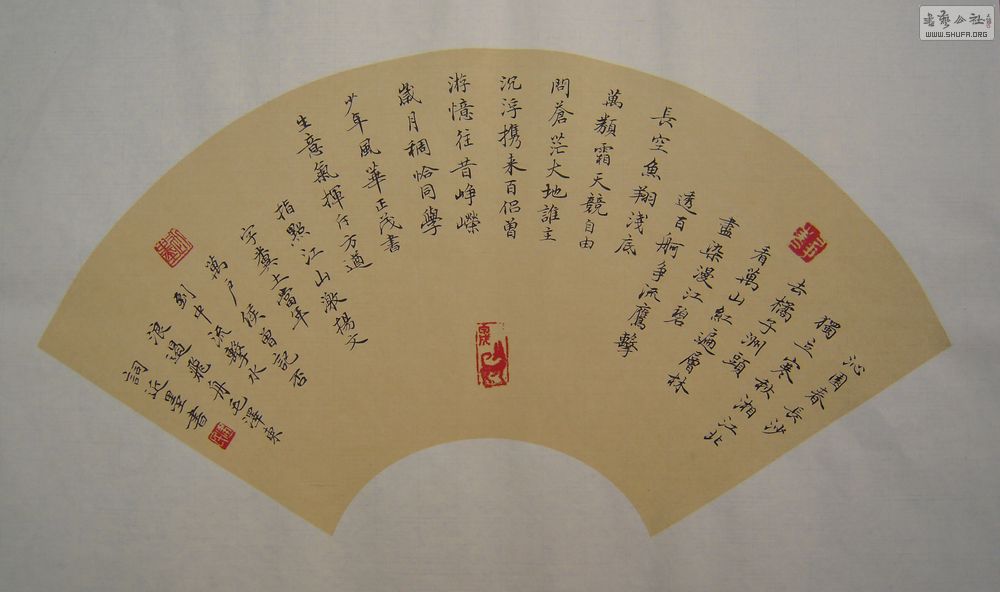 沁園春長沙
獨立寒秋湘江北
去橘子洲頭
看萬山紅遍層林
盡染漫江碧
透百舸争流鷹擊
長空魚翔淺底
萬類霜天競自由
問蒼茫大地誰主
沉浮携来百侣曾
游憶往昔峥嶸
歲月稠恰同學
少年風華正茂書
生意氣揮斥方遒
指點江山激揚文
字糞土當年
萬户侯曾記否
到中流擊水
浪遏飛舟毛澤東
詞墨書
書藝公社
WWW.SHUFA.ORG